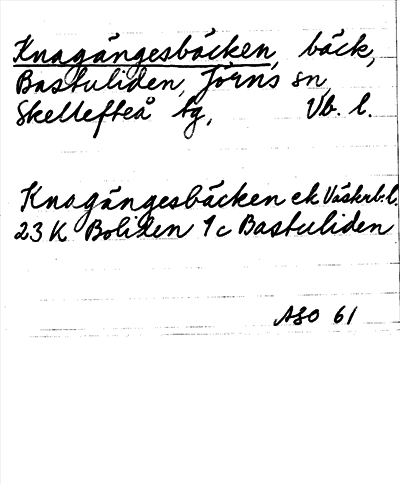 Knagängesbäcken, bäck,
Bastuliden, Jörns sn,
Skellefteå tg, Vb. l.
Knagängesbäcken ek Väskrb.l.
23 K Boliden 1c Bastuliden
ASO 61